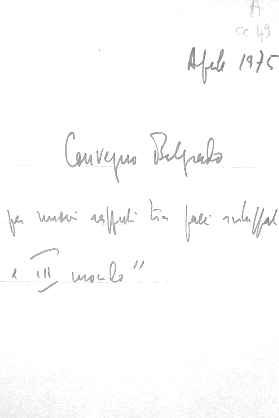 A
cc 49
Aprile 1975
Convegno Belgrado
per nuovi rapporti tra paesi sviluppati
e III mondo"